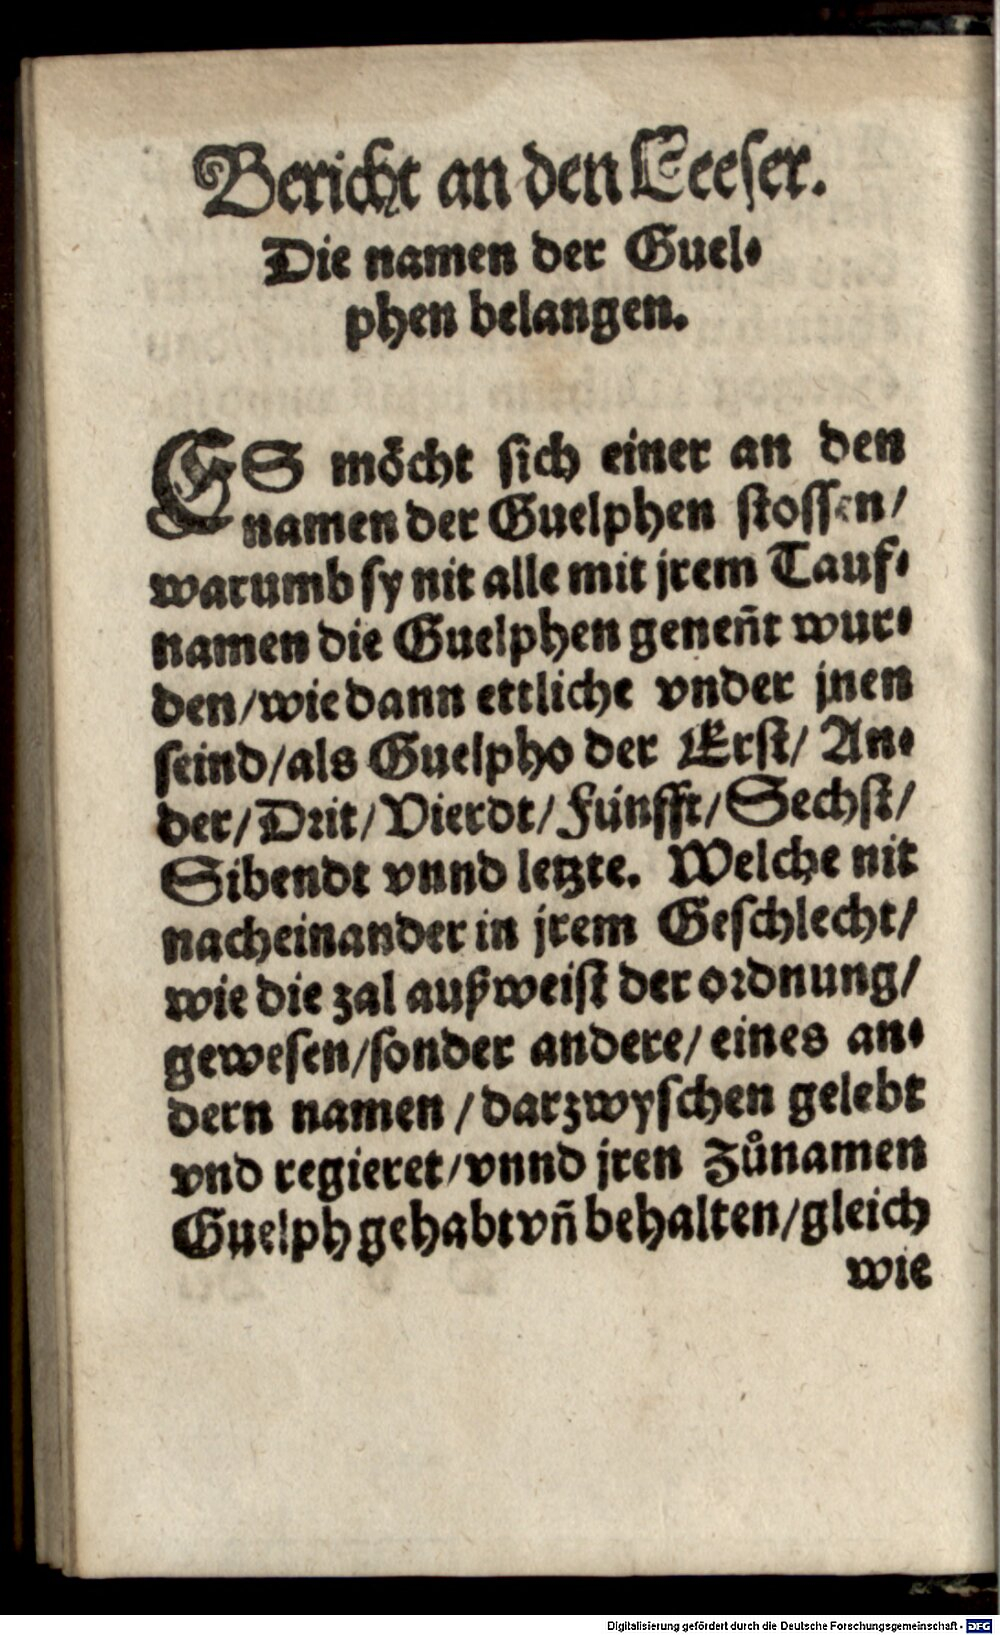 Bericht an den Leeser.
Die namen der Guel⸗
phen belangen.
ES möcht sich einer an den
namen der Guelphen stossen/
warumb sy nit alle mit jrem Tauf⸗
namen die Guelphen geneñt wur⸗
den/wie dann ettliche vnder jnen
seind/als Guelpho der Erst/ An⸗
der/Drit/Vierdt/Fünfft/Sechst/
Sibendt vnnd letzte. Welche nit
nacheinander in jrem Geschlecht/
wie die zal außweist der ordnung/
gewesen/sonder andere/eines an⸗
dern namen/darzwyschen gelebt
vnd regieret/vnnd jren Zůnamen
Guelph gehabt vñ behalten/gleich
wie
Digitalisierung gefördert durch die Deutsche Forschungsgemeinschaft - DFG